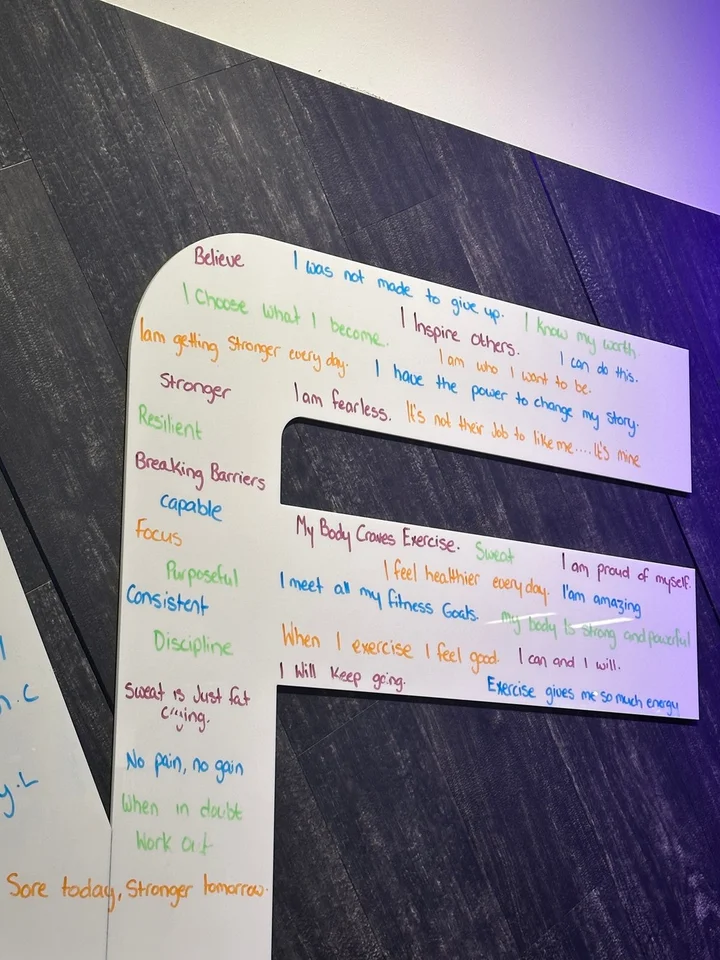 Believe
I was not made to give up.
I Choose what I become.
I Inspire others.
I know my worth.
Iam getting Stronger every day.
I am who I want to be.
I can do this.
Stronger
I have the power to change my story.
I am fearless.
It's not their Job to like me.... It's mine
Resilient
Breaking Barriers
capable
Focus
Purposeful
Consistent
Discipline
Sweat is Just fat
crying.
No pain, no gain
When in doubt
Work out
Sore today, Stronger tomorrow.
My Body Craves Exercise.
Sweat
I am proud of myself.
I feel healthier everyday.
I'am amazing
I meet all my fitness Goals.
my body is strong and powerful
When I exercise I feel good.
I can and I will.
I Will Keep going.
Exercise gives me so much energy